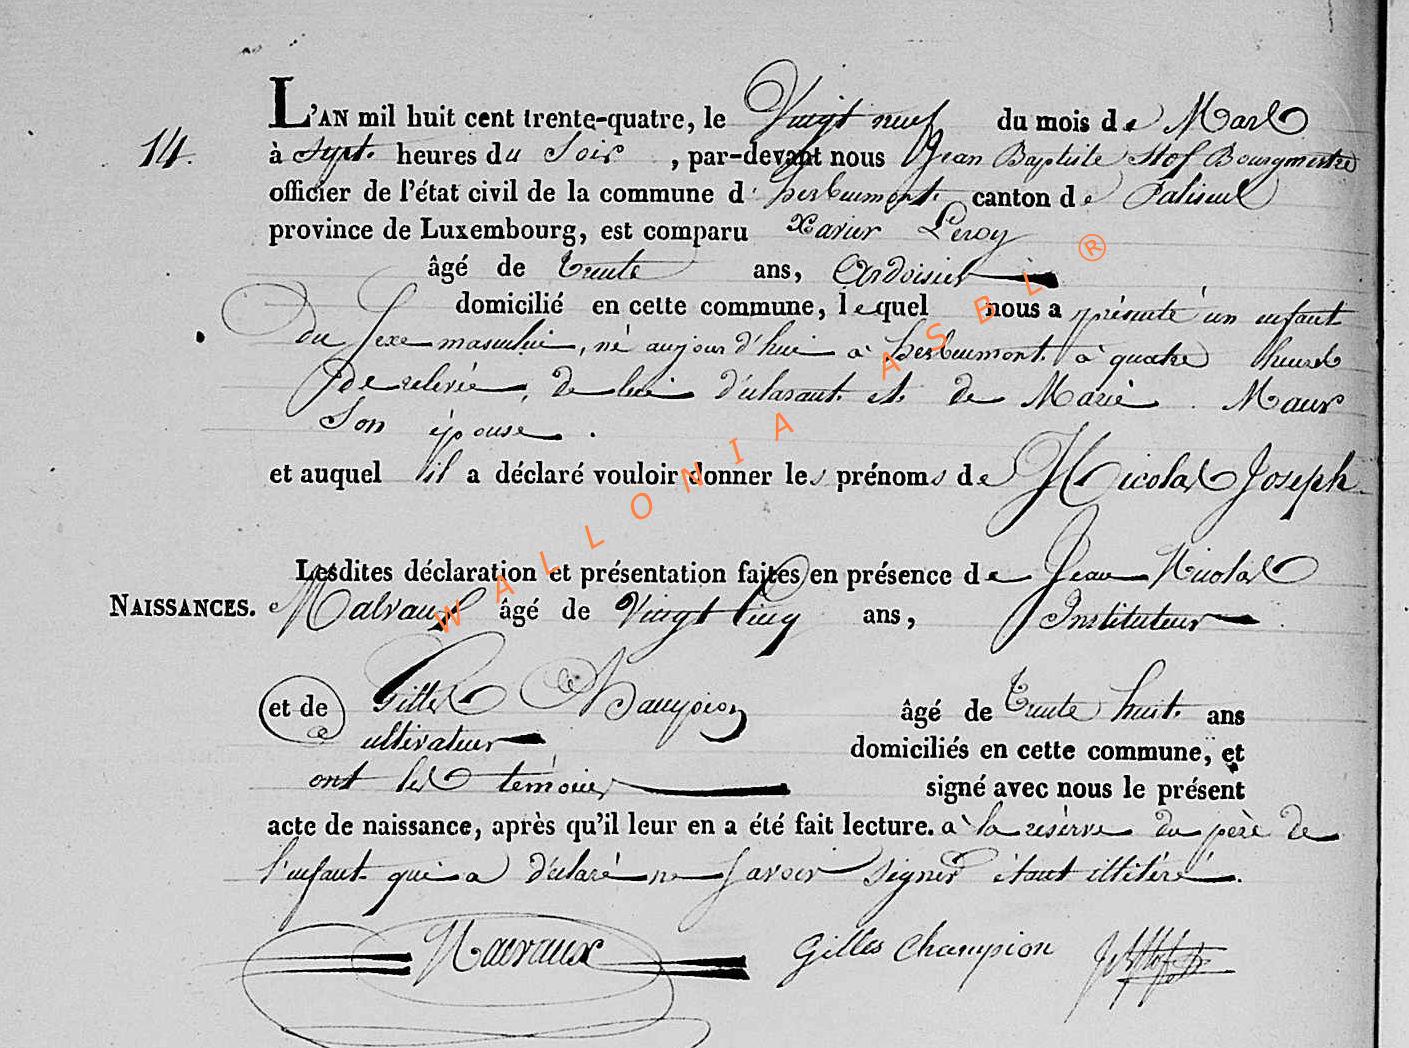 L'AN mil huit cent trente-quatre, le Vingt neuf du mois de Mars
14. à Sept heures du Soir, par-devant nous Jean Baptiste Stof Bourgmestre
officier de l'état civil de la commune d'herbeumont canton de Paliseul
province de Luxembourg, est comparu Xavier Leroy
âgé de trente ans, Ardoisier
domicilié en cette commune, lequel nous a présenté un enfant
Du Sexe masculin, né aujourd'hui à herbeumont à quatre heures
de relevée, de lui déclarant et de Marie Maux
Son épouse.
et auquel il a déclaré vouloir donner les prénoms de Nicolas Joseph
Lesdites déclaration et présentation faites en présence de Jean Nicolas
NAISSANCES. Malvaux âgé de Vingt cinq ans, Instituteur
et de Gilles Champion âgé de trente huit ans
cultivateur domiciliés en cette commune, et
ont les témoins signé avec nous le présent
acte de naissance, après qu'il leur en a été fait lecture. à la réserve du père de
l'enfant qui a déclaré ne Savoir Signer étant illitéré.
Malvaux Gilles Champion
WALLONIA ASBL ®